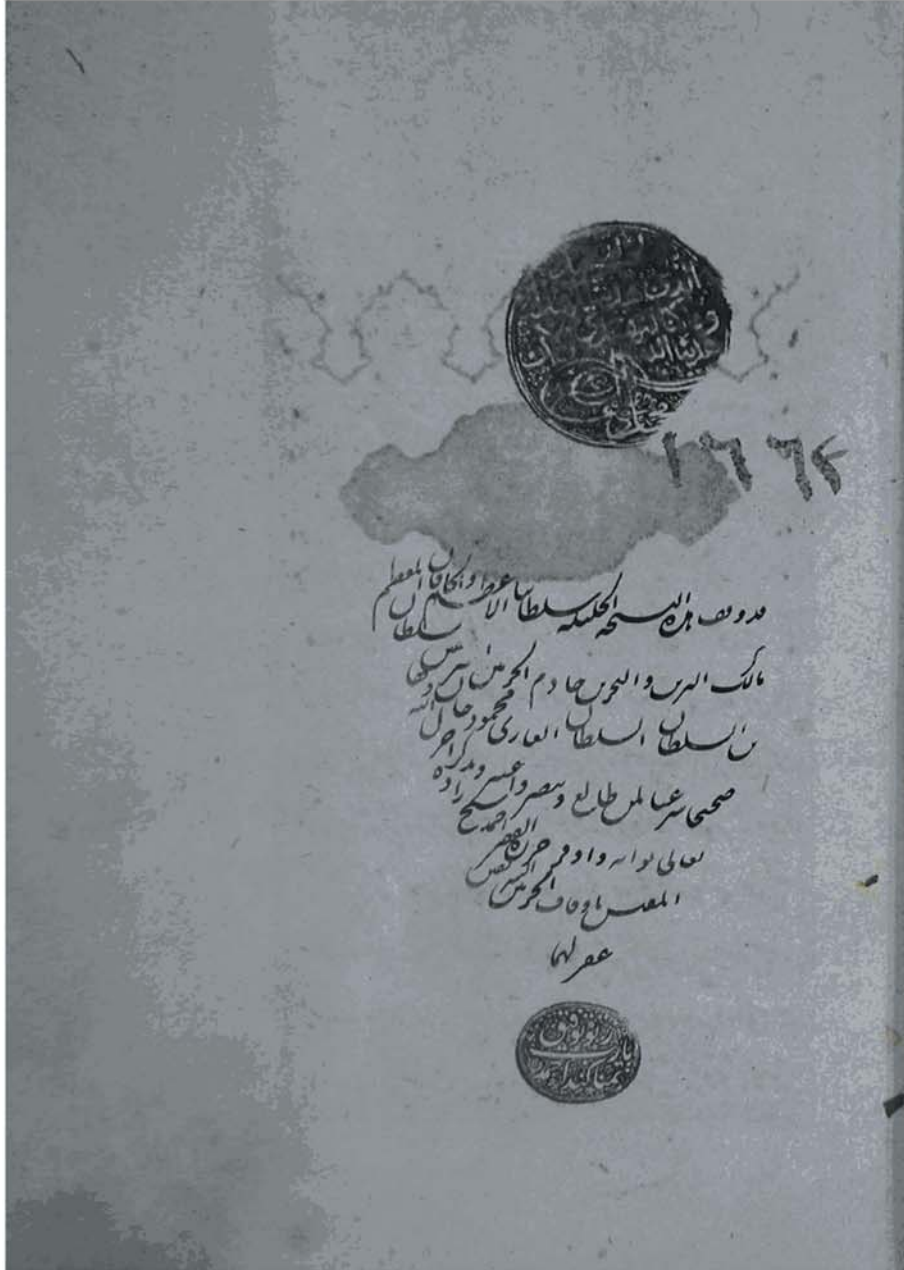 الحمد لله الذى هدانا لهذا
وما كنا لنهتدى لولا ان
هدانا الله
قد وقف هذه النسخة الجليلة سلطاننا الاعظم والخاقان المعظم
مالك البرين والبحرين خادم الحرمين الشريفين السلطان
بن السلطان السلطان الغازى محمود خان وقفا
صحيحا شرعيا لمن طالع وتبصر واعتبر وتذكر اجزل الله
تعالى ثوابه واوفر حرره الفقير احمد شيخ زاده
المفتش باوقاف الحرمين الشريفين
غفر لهما